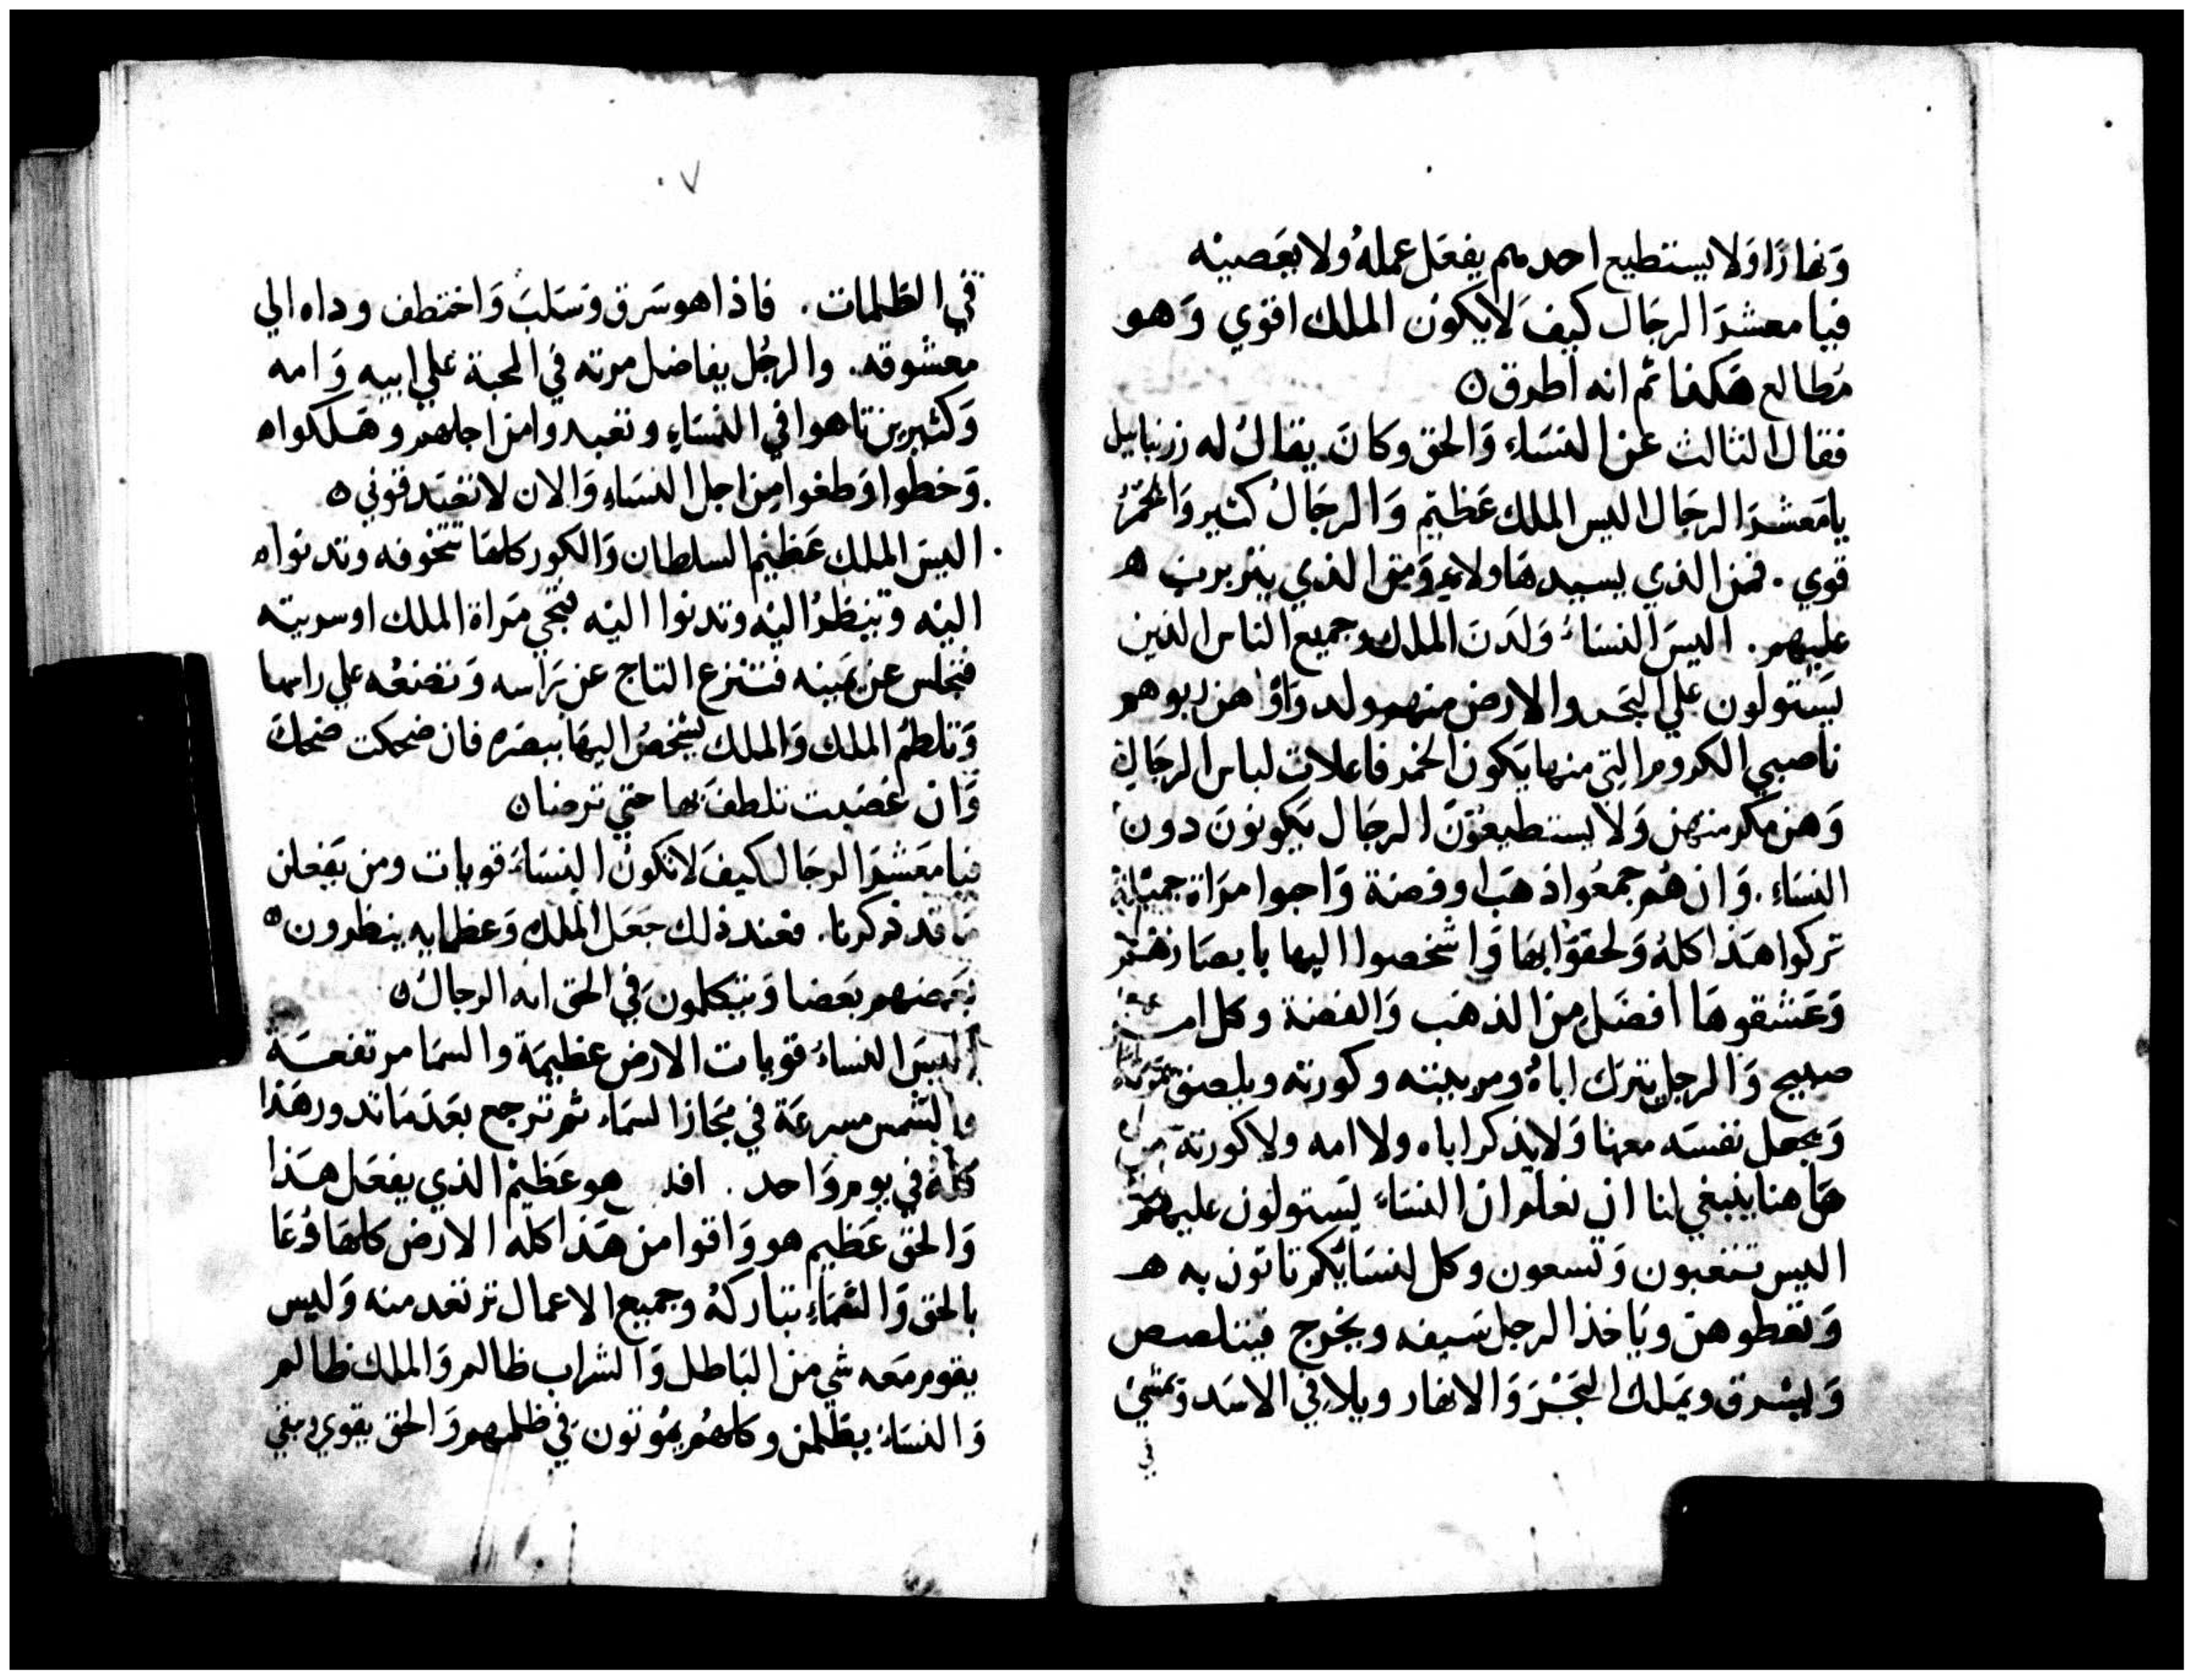 وَنهارًا وَلا يستطيع احد منهم يفعَل عملهُ ولا يعَصينه
فيا معشرَ الرجَال كيفَ لا يكون الملك اقوي وَهو
مَطالع هَكذا ثم انه اطرق ٥
فقال الثالث عن النسَاء وَالحق وكانَ يقالُ له زرنبابيل
يا مَعشرَ الرجَال اليس الملك عَظيم وَالرجَالُ كثير وَالخمَرُ
قوي . فمن الذي يسيد هَاولاء وَمن الذي يتزبرب ه
عليهم . اليسَ النسَاءُ وَلدَن الملك وجميع الناس الذين
يَستولون علي البحَر والارض منهم ولدوَا وَاهن ربو هو
ناصبي الكروم التي منها يَكون الخمر فاعلات لباس الرجَال
وَهن مكرمنهن وَلا يستطيعوَن الرجَال يَكونونَ دون
النسَاء . وَان هُم جمعُوا ذهَبا وفضة وَاحبوا امرَاة جميلة
تركوا هذا كلهُ وَلحقوَا بهَا وَاشخصوا اليها بابصَارهم
وَعَشقوهَا افضَل من الذهَب وَالفضة وكل امر
صبيح وَالرجل يترك اباهُ ومربيته وكورته ويلصق بمرَاته
وَيجعل نفسَه معهَا وَلا يذكر اباه ولا امه ولا كورته من
هَاهنا ينبغي لنا ان نعلم ان النسَاءَ يَستولون عليكم
اليس تتعبون وَتسعون وكل لنسَايكم تاتون به هـ
وَتعطوهن ويَاخذ الرجل سَيفه ويخرج فيتلصص
وَيسرق ويمَلك البحَرَ وَالانهار ويلاقي الاسَد وَيمشي
في
٠٧
في الظلمات . فاذا هو سَرق وَسَلبَ وَاختطف وداه الي
معشوقه . والرجُل يفاضل مرته في المحبة علي ابيه وَامه
وَكثيرين تاهوا في النسَاءِ وتعبدوا من اجلهم وهَلكوا ه
وَخطوا وَطغوا من اجل النسَاءِ وَالان لا تعَبَد قوني ٥
اليسَ الملك عَظيم السلطان وَالكور كلهَا تتخوفه وتدنوا ه
اليَه وتنظرُ اليَه وتدنوا اليَه فتجي مَراة الملك او سريته
فتجلس عن يَمينه فتنزع التاج عن رَاسه وَتضعُه علي راسها
وَتلطمُ الملك وَالملك يشخصُ اليهَا ببصَره فان ضحكت ضحك
وَان غضبت تلطفَ بها حتي ترضا ٥
فيا معَشرَ الرجَال كيفَ لا تكون النسَاءَ قويات ومن يَفعلن
مَا قد ذكرنا . فعند ذلك جعَل الملك وَعظمايه ينظرون ٥
بعَضهم بعَضا وَيتكلمونَ في الحق ايه الرجالُ ٥
اليسَ النساءُ قويات الارض عظيمَة والسمَا مرتفعَة
والشمس مسرعَة في مَجَاز السمَاء ثم ترجع بعَد مَا تدور هَذا
كلهُ في يوم وَاحد . افلا هو عَظيمُ الذي يفعَل هذا
وَالحق عَظيم هو وَاقوا من هَذا كله الارض كلهَا دُعَا
بالحق وَالسَمَاءِ تباركهُ وجميع الاعمال ترتعد منه وَليس
يقوم مَعه شي من البَاطل وَالشراب ظالم وَالملك ظالم
وَالنسَاءُ يظلمن وكلهُم يمُوتون في ظلمهم وَالحق يقوي ويبقي